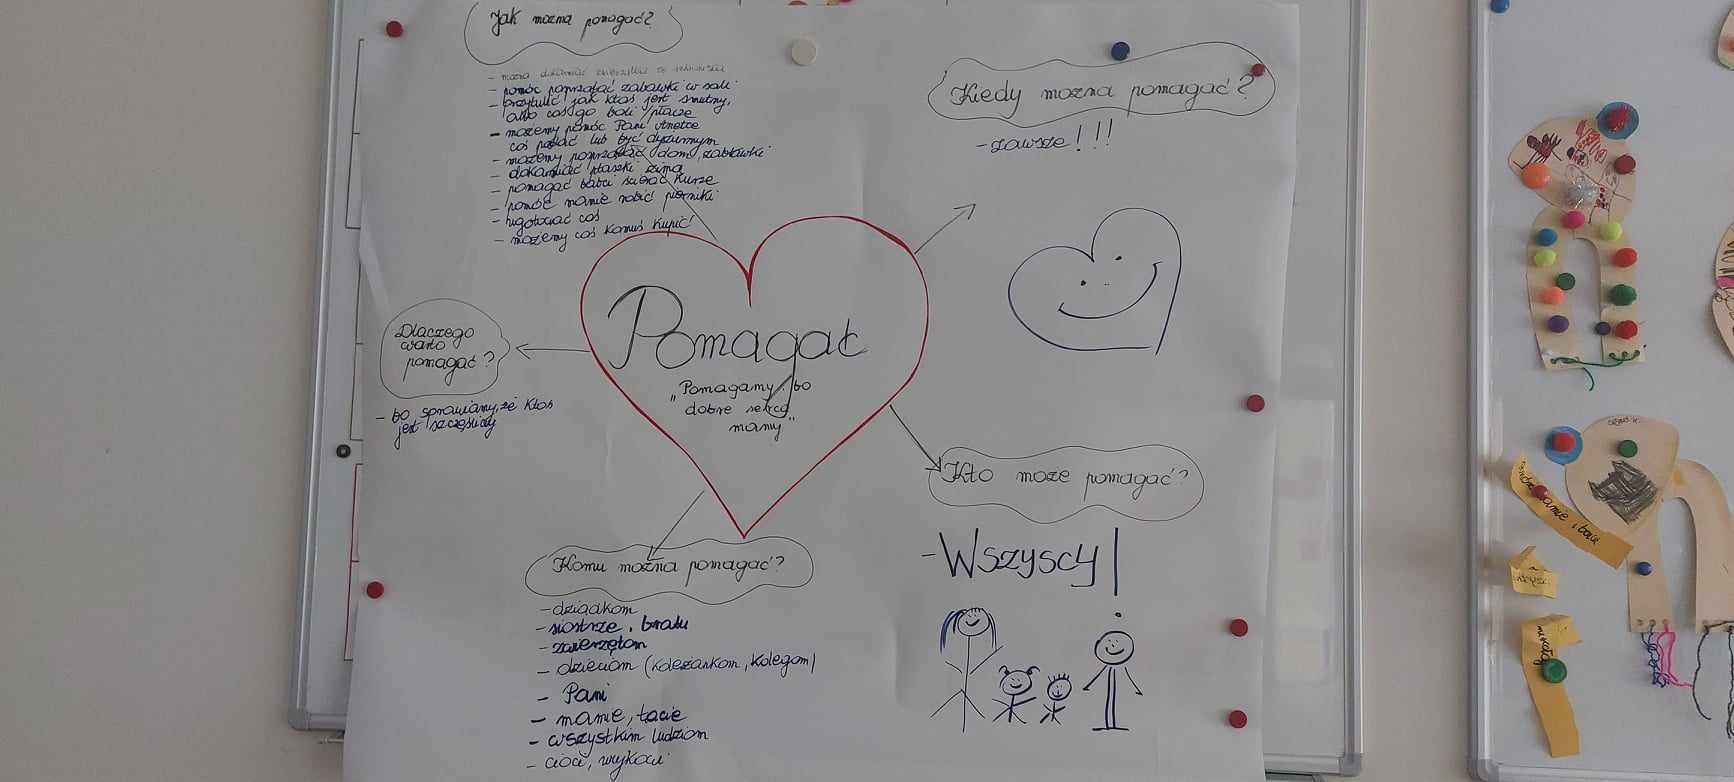 Jak można pomagać?
- można dokarmiać zwierzątka ze schroniska
- pomóc posprzątać zabawki w sali
- przytulić jak ktoś jest smutny,
albo coś go boli / płacze
- możemy pomóc Pani Anetce
coś podać lub być dyżurnym
- możemy posprzątać dom, zabawki
- dokarmiać ptaszki zimą
- pomagać babci ścierać kurze
- pomóc mamie robić pierniki
- ugotować coś
- możemy coś komuś kupić
Kiedy można pomagać?
- zawsze!!!
Dlaczego
warto
pomagać?
- bo sprawiamy, że ktoś
jest szczęśliwy
Pomagać
„Pomagamy, bo
dobre serca
mamy”
Kto może pomagać?
- Wszyscy!
Komu można pomagać?
- dziadkom
- siostrze, bratu
- zwierzętom
- dzieciom (koleżankom, kolegom)
- Pani
- mamie, tacie
- wszystkim ludziom
- cioci, wujkowi
mamie i tacie